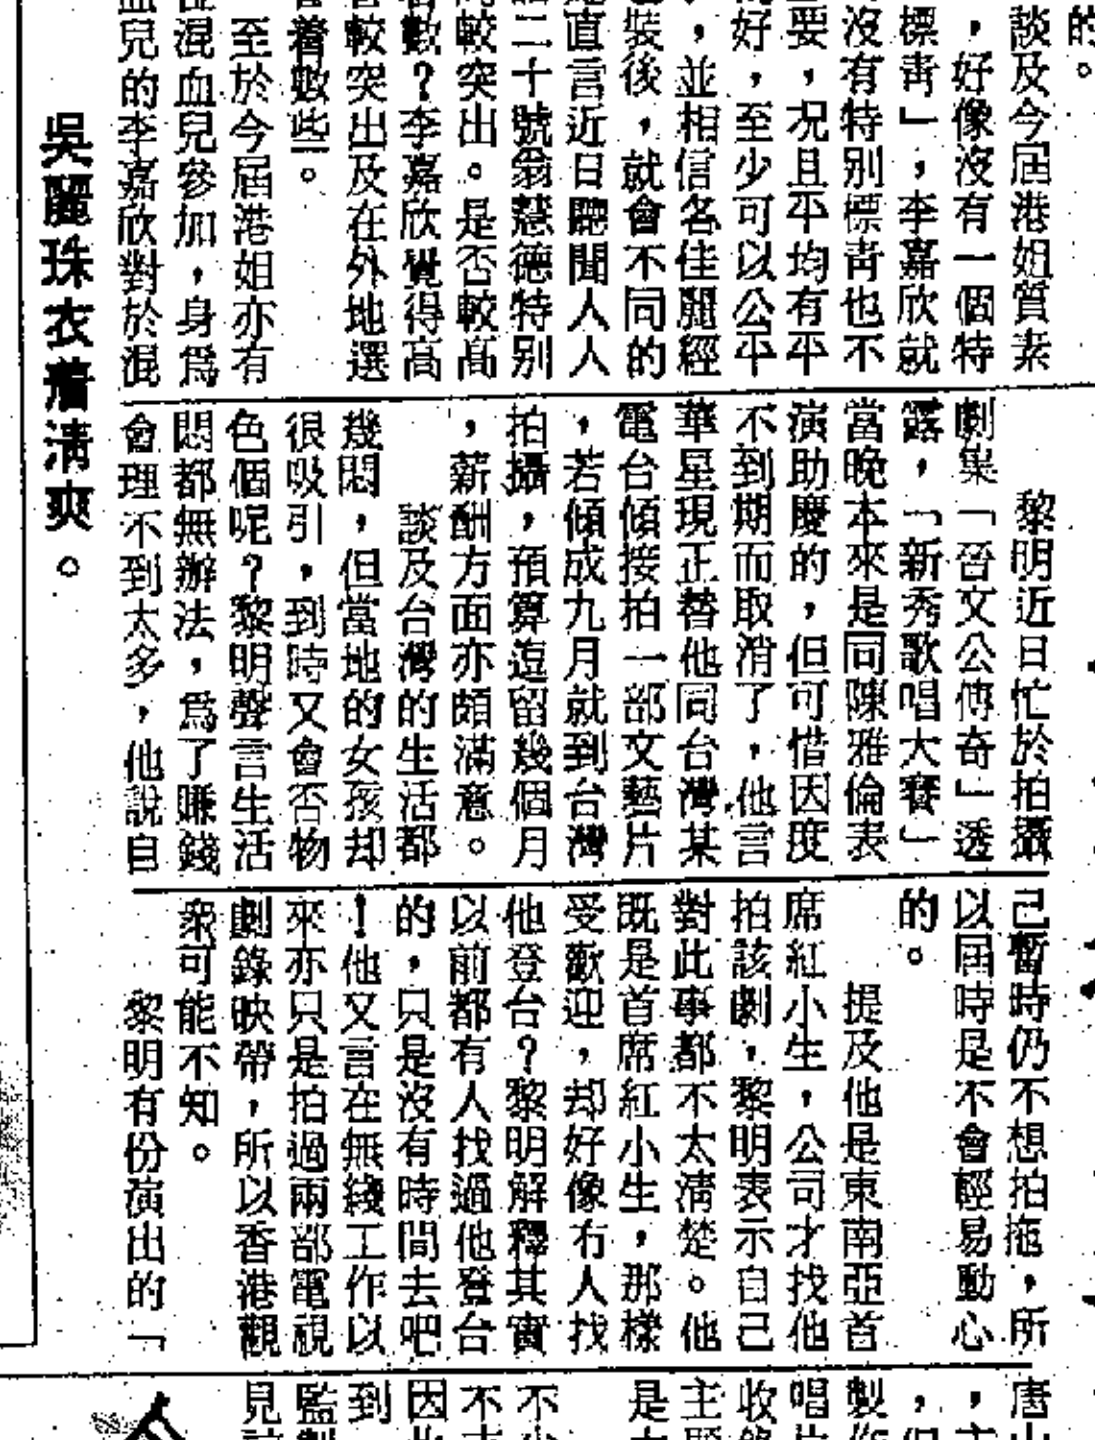 的。
談及今屆港姐質素
，好像沒有一個特
標青」，李嘉欣就
沒有特別標青也不
要，況且平均有平
好，至少可以公平
，並相信各佳麗經
裝後，就會不同的
直言近日聽聞人人
二十號翁慧德特別
較突出。是否較高
數？李嘉欣覺得高
較突出及在外地選
着數些。
至於今屆港姐亦有
混血兒參加，身爲
兒的李嘉欣對於混
吳麗珠衣着清爽。
黎明近日忙於拍攝
劇集「晉文公傳奇」透
露，「新秀歌唱大賽」
當晚本來是同陳雅倫表
演助慶的，但可惜因度
不到期而取消了，他言
華星現正替他同台灣某
電台傾接拍一部文藝片
，若傾成九月就到台灣
拍攝，預算逗留幾個月
，薪酬方面亦頗滿意。
談及台灣的生活都
幾悶，但當地的女孩却
很吸引，到時又會否物
色個呢？黎明聲言生活
悶都無辦法，爲了賺錢
會理不到太多，他說自
己暫時仍不想拍拖，所
以屆時是不會輕易動心
的。
提及他是東南亞首
席紅小生，公司才找他
拍該劇，黎明表示自己
對此事都不太清楚。他
既是首席紅小生，那樣
受歡迎，却好像冇人找
他登台？黎明解釋其實
以前都有人找過他登台
的，只是沒有時間去吧
！他又言在無綫工作以
來亦只是拍過兩部電視
劇錄映帶，所以香港觀
衆可能不知。
黎明有份演出的「
唐
，
，
製
唱
收
主
是
不
不
因
到
監
見